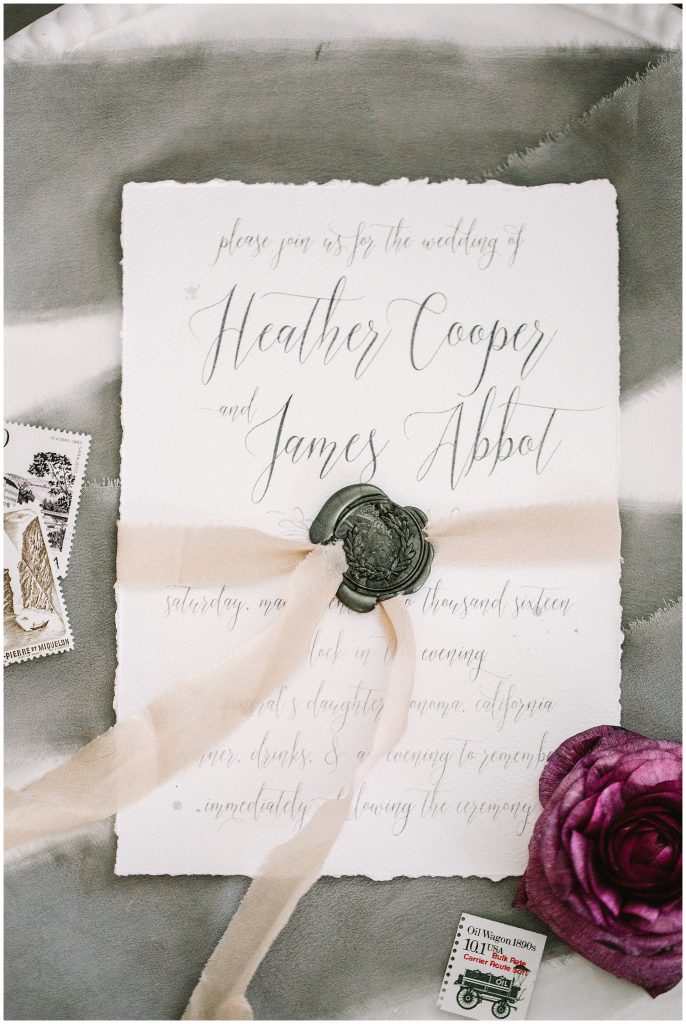 please join us for the wedding of
Heather Cooper
and
James Abbot
saturday, thousand sixteen
evening
daughter sonoma, california
drinks, & evening to remember
immediately following the ceremony
-PIERRE ET MIQUELON
1
Oil Wagon 1890s
10.1 USA
Bulk Rate
Carrier Route Sort
OIL